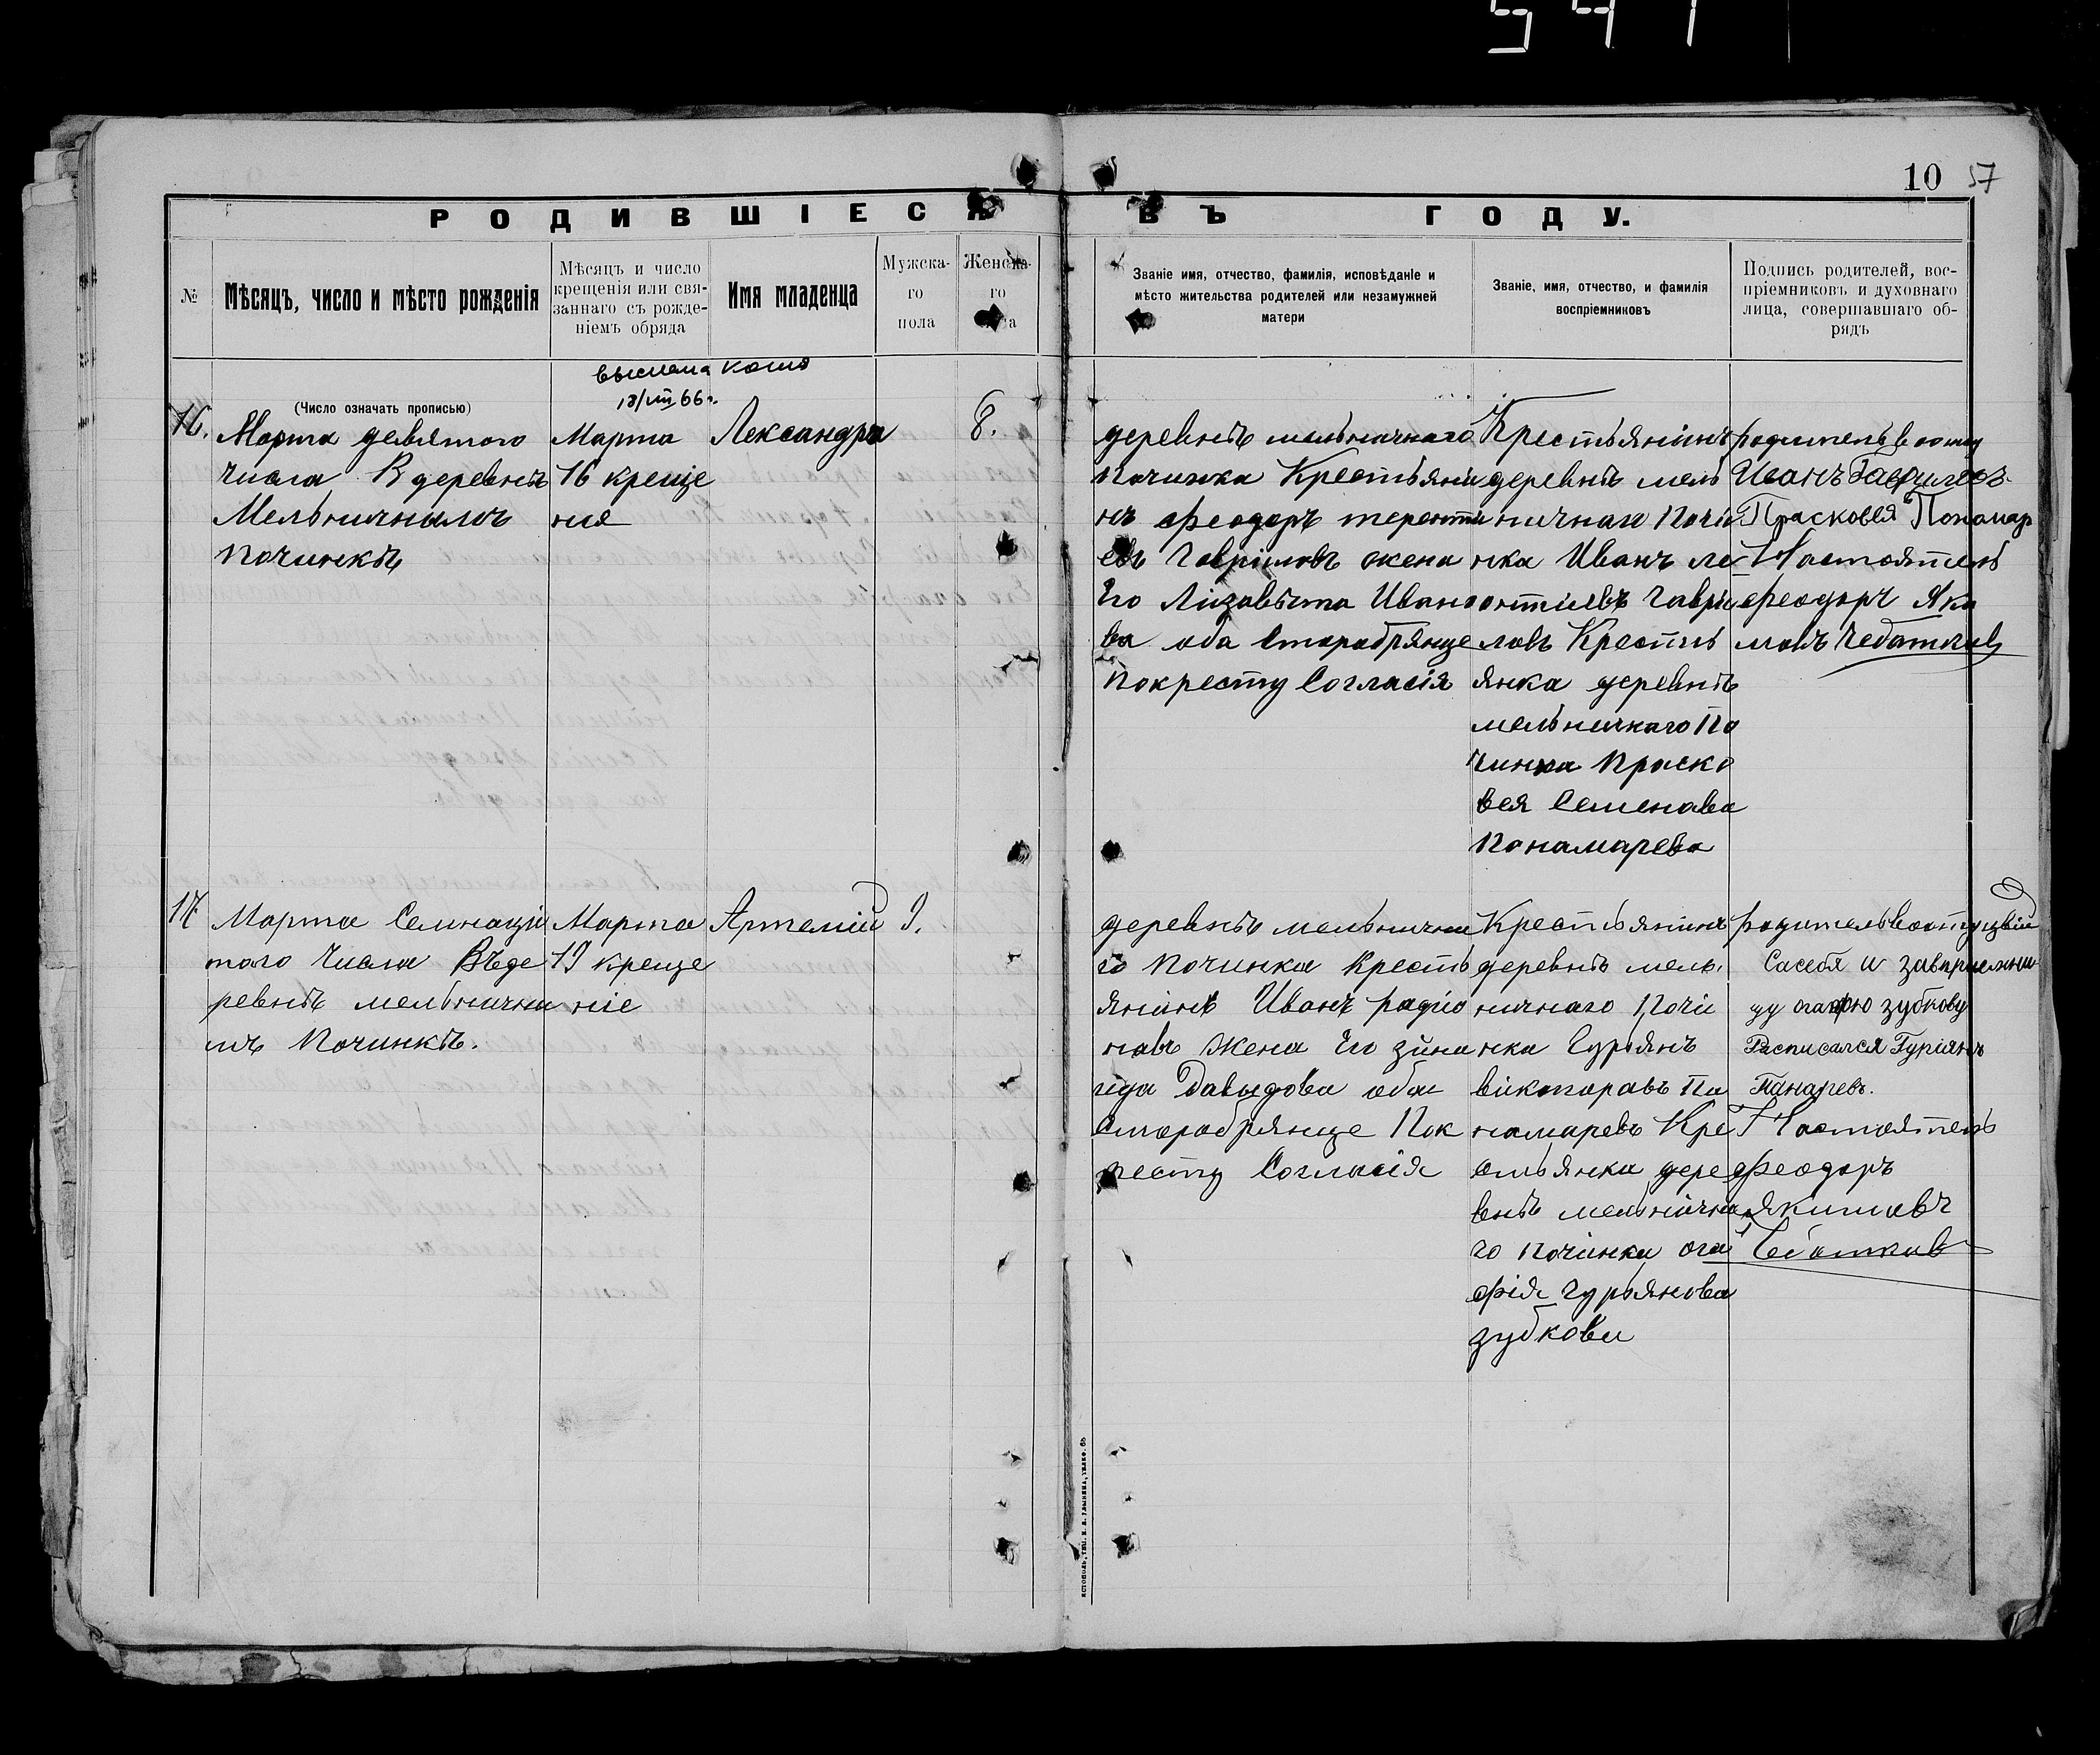 541
10 57
РОДИВШІЕСЯ ВЪ ГОДУ.
№
Мѣсяцъ, число и мѣсто рожденія
Мѣсяцъ и число
крещенія или свя-
заннаго съ рожде-
ніемъ обряда
Имя младенца
Мужска-
го
пола
Женска-
го
Званіе имя, отчество, фамилія, исповѣданіе и
мѣсто жительства родителей или незамужней
матери
Званіе, имя, отчество, и фамилія
воспріемниковъ
Подпись родителей, вос-
пріемниковъ и духовнаго
лица, совершавшаго об-
рядъ
(Число означать прописью)
выслана копия
18/VIII 66 г.
16.
Марта девятого
числа В деревнѣ
Мельничнымъ
починкѣ
Марта
16 креще
ния
Лександра
8.
деревнѣ мельничнаго
починка Крестьяни
нъ Феодоръ теренти
евъ Гаврiловъ жена
Его Лiзавѣта Ивано
ва оба Старобрянце
покресту Согласія
Крестьянiнъ
деревнѣ мель
ничнаго Почi
нка Иванъ ле
онтiевъ гаврi
ловъ Кресть
янка деревнѣ
мельничнаго По
чинка Праско
вея Семенава
Понамарева
родитель
Иванъ Гаврилов.
Прасковея Пономар
Настоятель
Феодоръ Яки
мовъ Чебатков
17
Марта Семнаци
того Числа Въ де
ревнѣ мельнични
мъ Починкѣ.
Марта
19 креще
нiе
Артемiй
9.
деревнѣ мельнична
го Починка Кресть
янiнъ Иванъ радiо
навъ Жена Его зiна
ида Давыдова обаи
Старобрянце Пок
ресту Согласiя
Крестьянiнъ
деревнѣ мель.
ничнаго Почi
нка Гурьянъ
вiкторавъ По
намаревъ Кре
стьянка дере
внѣ мельнiчна
го Починка ога
фiя гурьянова
зубкова
родитель
Сасебя и
цу огафю зубкову
Расписался Гуріянъ
Панарев.
Настоятель
Феодоръ
Якимовъ
Чебатков